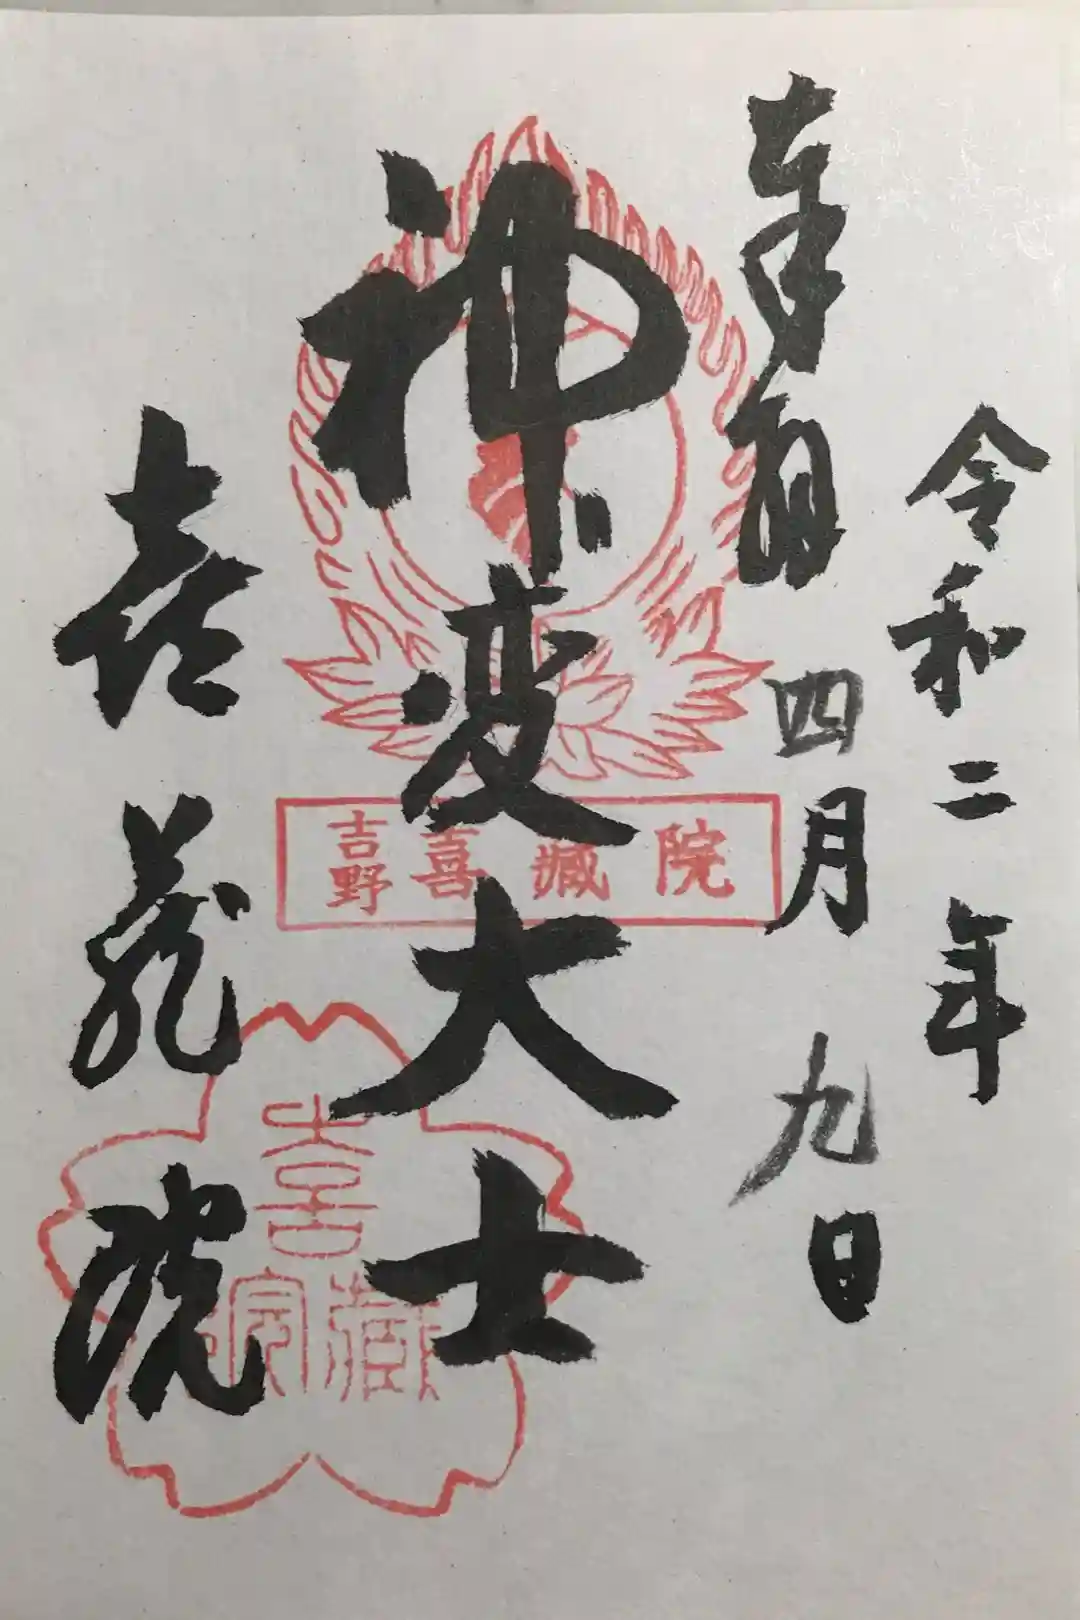 令和二年
奉拝 四月九日
神变大士
喜蔵院
吉野喜蔵院
喜蔵院